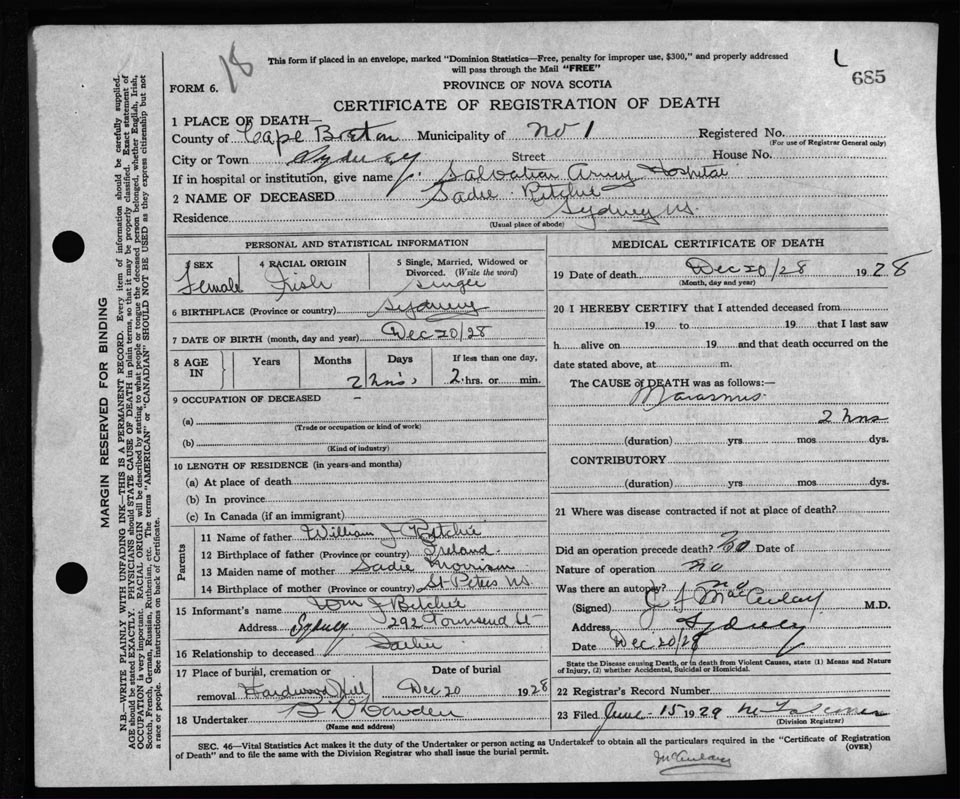 18
This form if placed in an envelope, marked "Dominion Statistics—Free, penalty for improper use, $300," and properly addressed
will pass through the Mail "FREE"
L
685
FORM 6.
PROVINCE OF NOVA SCOTIA
CERTIFICATE OF REGISTRATION OF DEATH
1 PLACE OF DEATH—
County of Cape Breton Municipality of No 1 Registered No.
(For use of Registrar General only)
City or Town Sydney Street House No.
If in hospital or institution, give name Salvation Army Hospital
2 NAME OF DECEASED Sadie Ritchie
Residence Sydney NS.
(Usual place of abode)
PERSONAL AND STATISTICAL INFORMATION
3 SEX 4 RACIAL ORIGIN 5 Single, Married, Widowed or
Divorced. (Write the word)
Female Irish Single
6 BIRTHPLACE (Province or country) Sydney
7 DATE OF BIRTH (month, day and year) Dec 20/28
8 AGE IN Years Months Days If less than one day,
2 hrs. 2 hrs. or min.
9 OCCUPATION OF DECEASED –
(a)
(Trade or occupation or kind of work)
(b)
(Kind of industry)
10 LENGTH OF RESIDENCE (in years and months)
(a) At place of death
(b) In province
(c) In Canada (if an immigrant)
Parents
11 Name of father William J Ritchie
12 Birthplace of father (Province or country) Ireland.
13 Maiden name of mother Sadie Morrison
14 Birthplace of mother (Province or country) St Peters NS.
15 Informant's name Wm J Ritchie
Address Sydney 292 Townsend St
16 Relationship to deceased Father
17 Place of burial, cremation or Date of burial
removal Hardwood Hill Dec 20 1928
18 Undertaker
(Name and address)
MEDICAL CERTIFICATE OF DEATH
19 Date of death Dec 20/28 1928
(Month, day and year)
20 I HEREBY CERTIFY that I attended deceased from
19 to 19 that I last saw
h alive on 19 and that death occurred on the
date stated above, at m.
The CAUSE of DEATH was as follows:—
Marasmus
2 hrs
(duration) yrs mos dys.
CONTRIBUTORY
(duration) yrs mos dys.
21 Where was disease contracted if not at place of death?
Did an operation precede death? No Date of
Nature of operation no
Was there an autopsy? no
(Signed) MacAulay M.D.
Address Sydney
Date Dec 20/28
State the Disease causing Death, or in death from Violent Causes, state (1) Means and Nature
of Injury, (2) whether Accidental, Suicidal or Homicidal.
22 Registrar's Record Number
23 Filed June 15 1929
(Division Registrar)
SEC. 46—Vital Statistics Act makes it the duty of the Undertaker or person acting as Undertaker to obtain all the particulars required in the "Certificate of Registration
of Death" and to file the same with the Division Registrar who shall issue the burial permit.
(OVER)
MARGIN RESERVED FOR BINDING
N.B.—WRITE PLAINLY WITH UNFADING INK—THIS IS A PERMANENT RECORD. Every item of information should be carefully supplied.
AGE should be stated EXACTLY. PHYSICIANS should STATE CAUSE OF DEATH in plain terms, so that it may be properly classified. Exact statement of
OCCUPATION is very important. RACIAL ORIGIN will be described by stating to what people or tongue the deceased person belonged, whether English, Irish,
Scotch, French, German, Russian, Ruthenian, etc. The terms "AMERICAN" or "CANADIAN" SHOULD NOT BE USED as they express citizenship but not
a race or people. See instructions on back of Certificate.